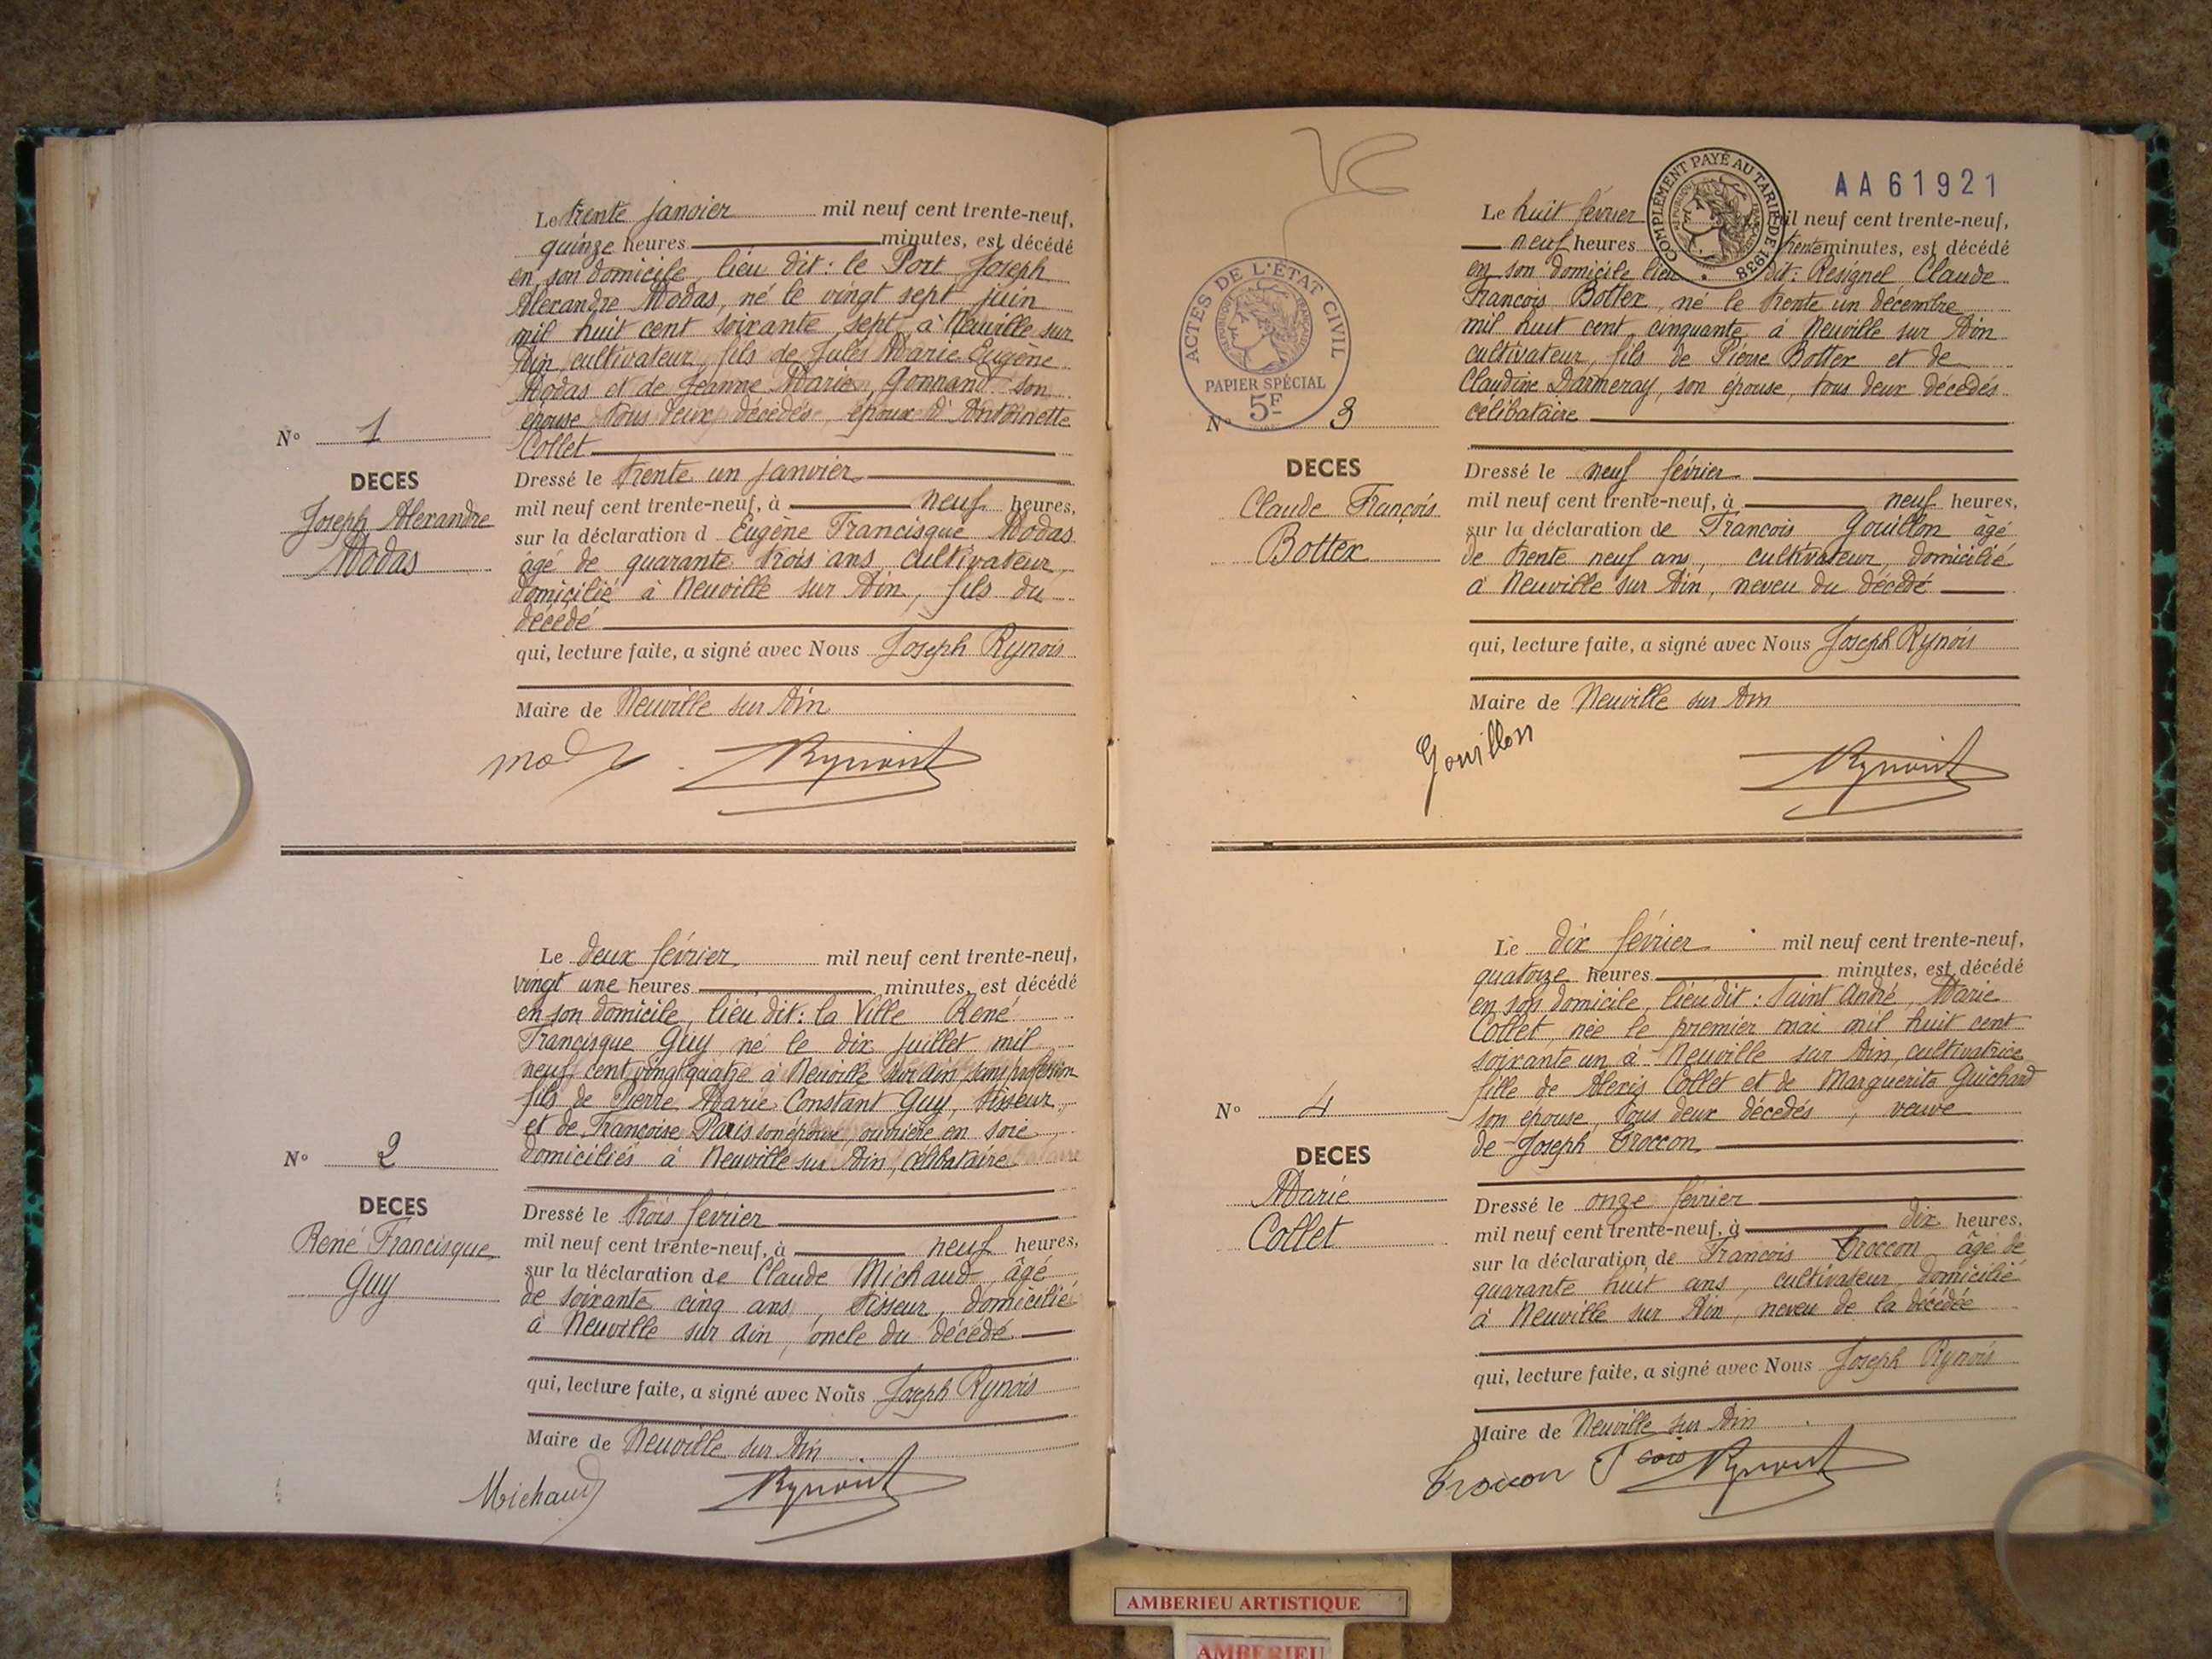 Le trente janvier mil neuf cent trente-neuf,
quinze heures minutes, est décédé
en son domicile, lieu dit: le Port Joseph
Alexandre Modas, né le vingt sept juin
mil huit cent soixante sept à Neuville sur
Ain, cultivateur, fils de Jules Marie Eugène
Modas et de Jeanne Marie Gonnand son
épouse tous deux décédés, époux d'Antoinette
Collet
N° 1
DECES
Joseph Alexandre
Modas
Dressé le trente un janvier
mil neuf cent trente-neuf, à neuf heures,
sur la déclaration d Eugène Francisque Modas
âgé de quarante trois ans, cultivateur,
domicilié à Neuville sur Ain, fils du
décédé
qui, lecture faite, a signé avec Nous Joseph Rynois
Maire de Neuville sur Ain
Le deux février mil neuf cent trente-neuf,
vingt une heures minutes, est décédé
en son domicile, lieu dit: la Ville René
Francisque Guy, né le dix juillet mil
neuf cent vingt quatre à Neuville sur ain, sans profession
fils de Pierre Marie Constant Guy, tisseur,
et de Françoise Paris son épouse, ouvrière en soie
domiciliés à Neuville sur Ain, célibataire
N° 2
DECES
René Francisque
Guy
Dressé le trois février
mil neuf cent trente-neuf, à neuf heures,
sur la déclaration de Claude Michaud, âgé
de soixante cinq ans, tisseur, domicilié
à Neuville sur ain, oncle du décédé
qui, lecture faite, a signé avec Nous Joseph Rynois
Maire de Neuville sur Ain
Michaud
AA61921
COMPLÉMENT PAYÉ AU TARIF DE 1938
Le huit février mil neuf cent trente-neuf,
neuf heures trente minutes, est décédé
en son domicile lieu dit: Resignel, Claude
François Bottex, né le trente un décembre
mil huit cent cinquante à Neuville sur Ain
cultivateur, fils de Pierre Bottex et de
Claudine Darmeray, son épouse, tous deux décédés
célibataire
ACTES DE L'ÉTAT CIVIL
PAPIER SPÉCIAL
5F
N° 3
DECES
Claude François
Bottex
Dressé le neuf février
mil neuf cent trente-neuf, à neuf heures,
sur la déclaration de François Gouillon âgé
de trente neuf ans, cultivateur, domicilié
à Neuville sur Ain, neveu du décédé
qui, lecture faite, a signé avec Nous Joseph Rynois
Maire de Neuville sur Ain
Gouillon
Le dix février mil neuf cent trente-neuf,
quatorze heures minutes, est décédé
en son domicile, lieu dit: Saint André, Marie
Collet, née le premier mai mil huit cent
soixante un à Neuville sur Ain, cultivatrice
fille de Alexis Collet et de Marguerite Guichard
son épouse, tous deux décédés, veuve
de Joseph Troccon
N° 4
DECES
Marie
Collet
Dressé le onze février
mil neuf cent trente-neuf, à dix heures,
sur la déclaration de François Troccon âgé de
quarante huit ans, cultivateur, domicilié
à Neuville sur Ain, neveu de la décédée
qui, lecture faite, a signé avec Nous Joseph Rynois
Maire de Neuville sur Ain
AMBERIEU ARTISTIQUE
AMBERIEU